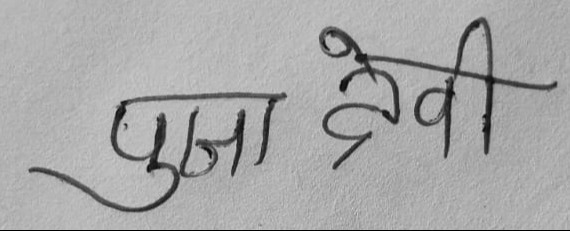 पुजा देवी